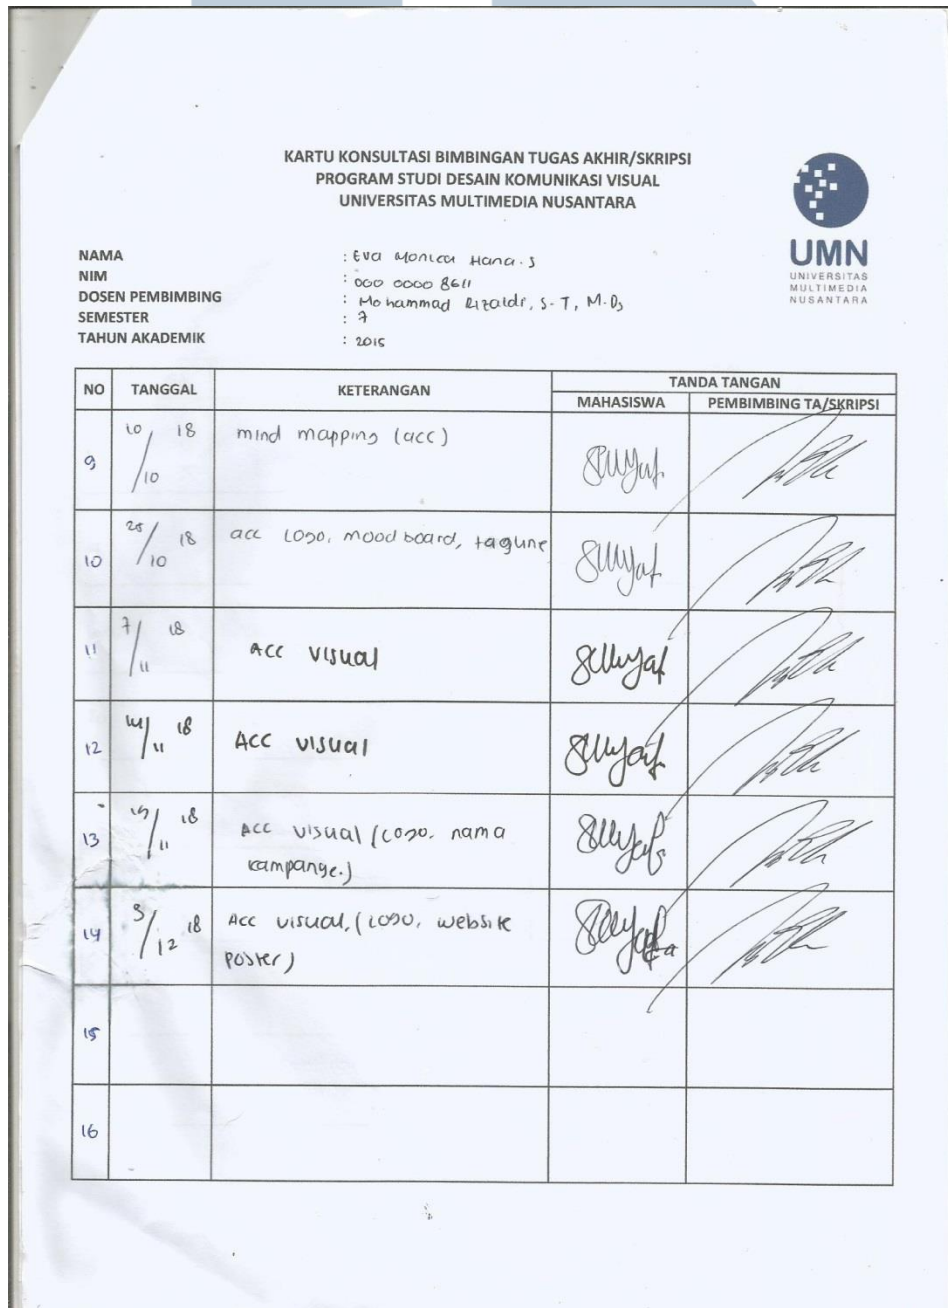 KARTU KONSULTASI BIMBINGAN TUGAS AKHIR/SKRIPSI
PROGRAM STUDI DESAIN KOMUNIKASI VISUAL
UNIVERSITAS MULTIMEDIA NUSANTARA
UMN
UNIVERSITAS
MULTIMEDIA
NUSANTARA
NAMA : Eva Monica Hana. S
NIM : 000 0000 8611
DOSEN PEMBIMBING : Mohammad Rizaldi, S.T, M.Ds
SEMESTER : 7
TAHUN AKADEMIK : 2015
NO TANGGAL KETERANGAN TANDA TANGAN
MAHASISWA PEMBIMBING TA/SKRIPSI
9 10/10 18 mind mapping (acc)
10 25/10 18 acc logo, mood board, tagline
11 7/11 18 Acc visual
12 14/11 18 ACC visual
13 /11 18 Acc visual (logo, nama
kampange.)
14 /12 18 Acc visual, (logo, website
poster)
15
16